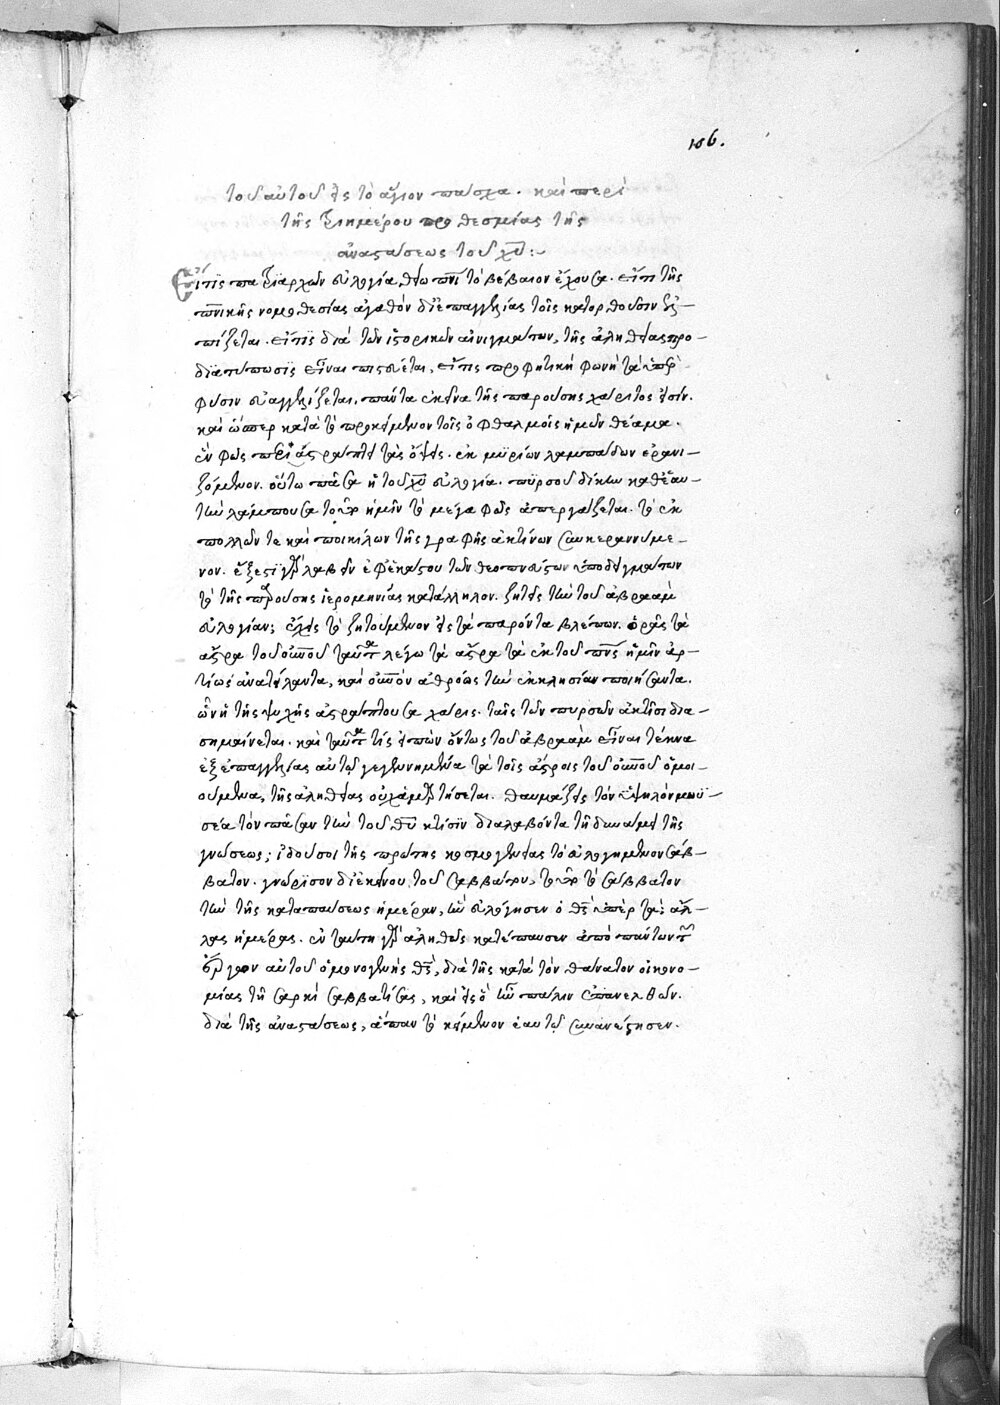 106.
τοῦ αὐτοῦ εἰς τὸ ἅγιον πάσχα. καὶ περὶ
τῆς τριημέρου προθεσμίας τῆς
ἀναστάσεως τοῦ χυ:~
Εἴ τις πατριαρχῶν εὐλογία θείω πνι τὸ βέβαιον ἔχουσα. εἴ τι τῆς
πνικῆς νομοθεσίας ἀγαθὸν δι' ἐπαγγελίας τοῖς κατορθοῦσιν ἐλ-
πίζεται. εἴ τις διὰ τῶν ἱστορικῶν αἰνιγμάτων, τῆς ἀληθείας προ-
διατύπωσις εἶναι πιστεύεται, εἴ τις προφητικὴ φωνὴ τὰ ὑπὲρ
φύσιν εὐαγγελίζεται, πάντα ἐκεῖνα τῆς παρούσης χάριτος ἐστίν.
καὶ ὥσπερ κατὰ τὸ προκείμενον τοῖς ὀφθαλμοῖς ἡμῶν θέαμα.
ἓν φῶς περιαστράπτει τὰς ὄψεις. ἐκ μυρίων λαμπάδων ἐρανι-
ζόμενον. οὕτω πᾶσα ἡ τοῦ χυ εὐλογία. πυρσοῦ δίκην καθ' ἑαυ-
τὴν λάμπουσα τοῦτο ἡμῖν τὸ μέγα φῶς ἀπεργάζεται. τὸ ἐκ
πολλῶν τε καὶ ποικίλων τῆς γραφῆς ἀκτίνων συγκεραννύμε-
νον. ἔξεστι γὰρ λαβεῖν ἐφ' ἑκάστου τῶν θεοπνεύστων ὑποδειγμάτων
τὸ τῆς παρούσης ἱερομηνίας κατάλληλον. ζητεῖς τὴν τοῦ ἀβραὰμ
εὐλογίαν; ἔχεις τὸ ζητούμενον εἰς τὰ παρόντα βλέπων. ὁρᾷς τὰ
ἄστρα τοῦ οὐνοῦ ταῦτα λέγω τὰ ἄστρα τὰ ἐκ τοῦ πνς ἡμῖν ἀρ-
τίως ἀνατείλαντα, καὶ οὐνὸν ἀθρόως τὴν ἐκκλησίαν ποιήσαντα.
ὧν ἡ τῆς ψυχῆς ἀστράπτουσα χάρις. ταῖς τῶν πυρσῶν ἀκτῖσι δια-
σημαίνεται. καὶ ταῦτα τίς εἰπὼν ὄντως τοῦ ἀβραὰμ εἶναι τέκνα
ἐξ ἐπαγγελίας αὐτῷ γεγεννημένα τὰ τοῖς ἄστροις τοῦ οὐνοῦ ὁμοι-
ούμενα, τῆς ἀληθείας οὐχ ἁμαρτήσεται. θαυμάζεις τὸν ὑψηλὸν μωϋ-
σέα τὸν πᾶσαν τὴν τοῦ θυ κτίσιν διαλαβόντα τῇ δυνάμει τῆς
γνώσεως; ἰδού σοι τῆς πρώτης κοσμογενείας τὸ εὐλογημένον σάβ-
βατον. γνώρισον δι' ἐκείνου τοῦ σαββάτου, τοῦτο τὸ σάββατον
τὴν τῆς καταπαύσεως ἡμέραν, ἣν εὐλόγησεν ὁ θς ὑπὲρ τὰς ἄλ-
λας ἡμέρας. ἐν ταύτῃ γὰρ ἀληθῶς κατέπαυσεν ἀπὸ πάντων τῶν
ἔργων αὐτοῦ ὁ μονογενὴς θς, διὰ τῆς κατὰ τὸν θάνατον οἰκονο-
μίας τῇ σαρκὶ σαββατίσας, καὶ εἰς ὃ ἦν πάλιν ἐπανελθών.
διὰ τῆς ἀναστάσεως, ἅπαν τὸ κείμενον ἑαυτῷ συνανέστησεν.